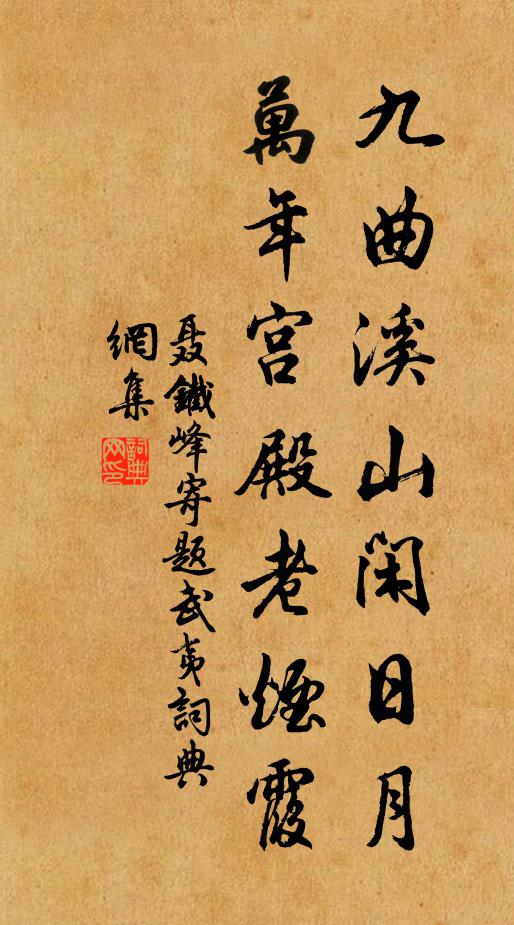 九曲溪山閑日月
萬年宮殿老煙霞
聂鐵峰寄題武夷詞典
網集
詞典
网印